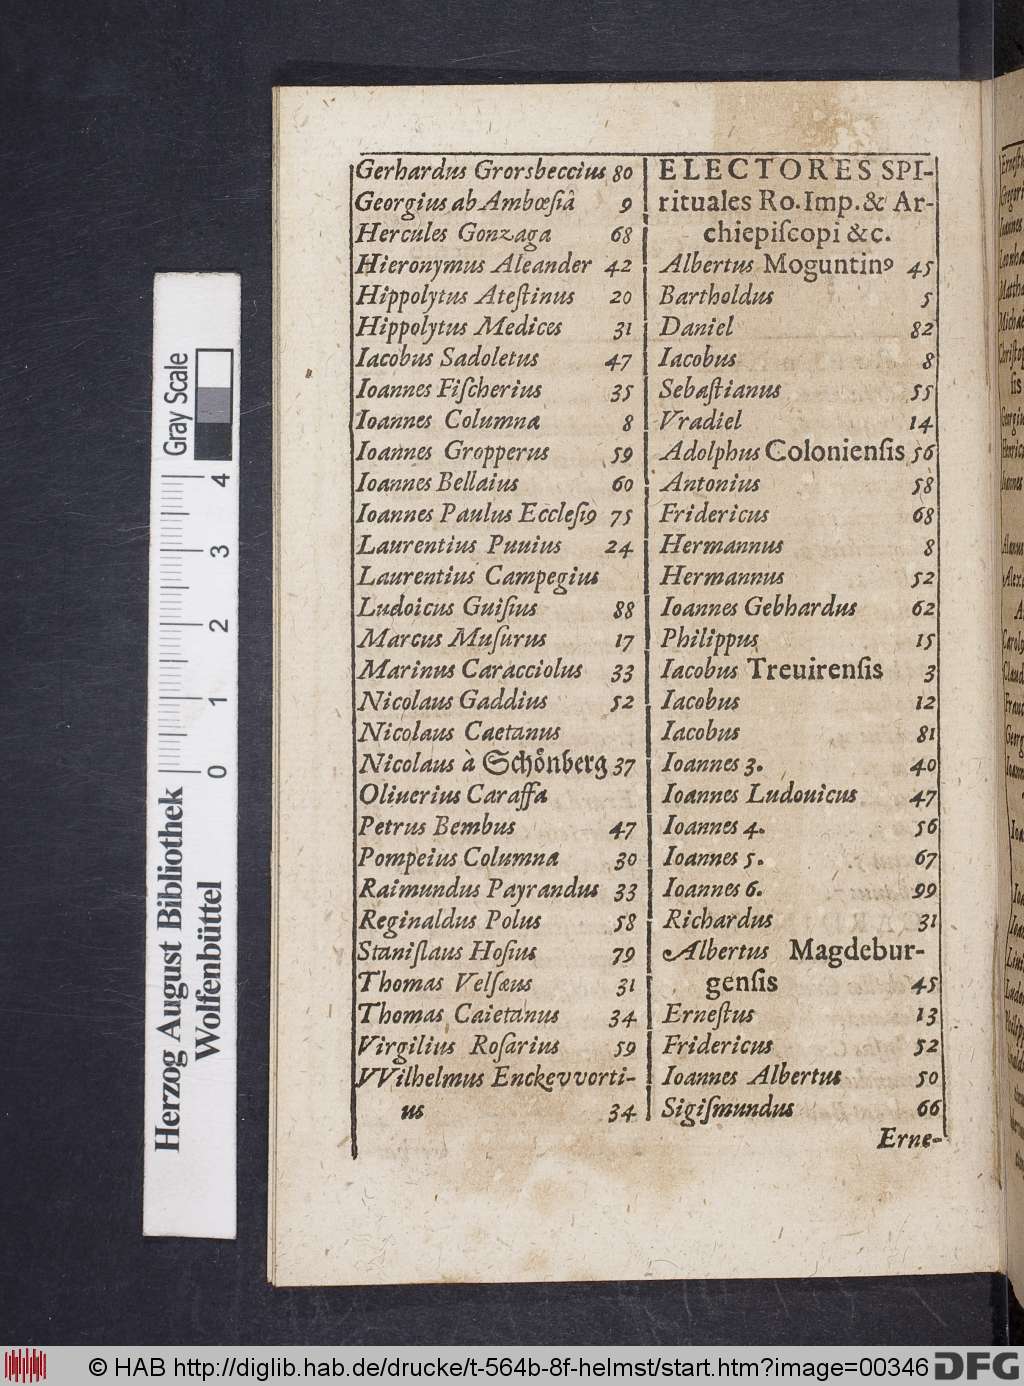 Gerhardus Grorsbeccius 80
Georgius ab Ambœsiâ 9
Hercules Gonzaga 68
Hieronymus Aleander 42
Hippolytus Ateſtinus 20
Hippolytus Medices 31
Iacobus Sadoletus 47
Ioannes Fiſcherius 35
Ioannes Columna 8
Ioannes Gropperus 59
Ioannes Bellaius 60
Ioannes Paulus Eccleſiꝰ 75
Laurentius Puuius 24
Laurentius Campegius
Ludoicus Guiſius 88
Marcus Muſurus 17
Marinus Caracciolus 33
Nicolaus Gaddius 52
Nicolaus Caetanus
Nicolaus à Schönberg 37
Oliuerius Caraffa
Petrus Bembus 47
Pompeius Columna 30
Raimundus Payrandus 33
Reginaldus Polus 58
Staniſlaus Hoſius 79
Thomas Velſæus 31
Thomas Caietanus 34
Virgilius Roſarius 59
VVilhelmus Enckevvorti-
us 34
ELECTORES SPI-
rituales Ro. Imp. & Ar-
chiepiſcopi &c.
Albertus Moguntinꝰ 45
Bartholdus 5
Daniel 82
Iacobus 8
Sebaſtianus 55
Vradiel 14
Adolphus Colonienſis 56
Antonius 58
Fridericus 68
Hermannus 8
Hermannus 52
Ioannes Gebhardus 62
Philippus 15
Iacobus Treuirenſis 3
Iacobus 12
Iacobus 81
Ioannes 3. 40
Ioannes Ludouicus 47
Ioannes 4. 56
Ioannes 5. 67
Ioannes 6. 99
Richardus 31
Albertus Magdebur-
genſis 45
Erneſtus 13
Fridericus 52
Ioannes Albertus 50
Sigiſmundus 66
Erne-
Herzog August Bibliothek
Wolfenbüttel
0 1 2 3 4
Gray Scale
© HAB http://diglib.hab.de/drucke/t-564b-8f-helmst/start.htm?image=00346
DFG